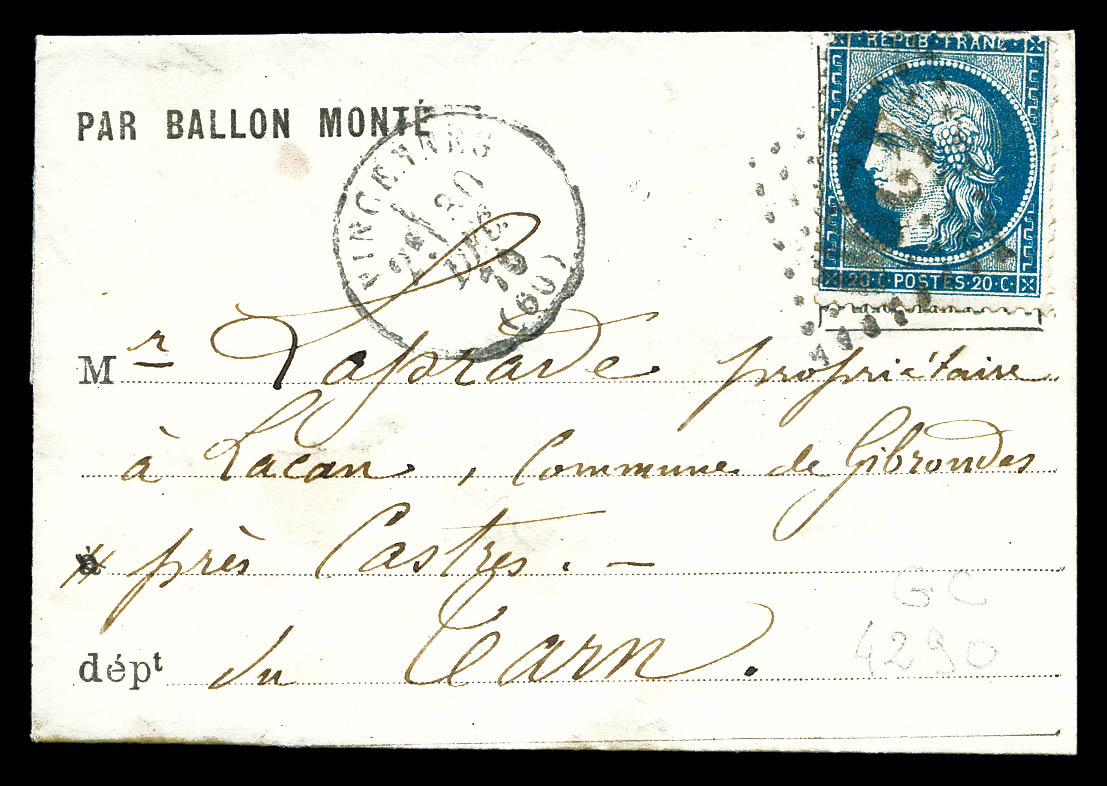 REPUB·FRANC·
PAR BALLON MONTÉ
VINCENNES
2e/ 30
DÉC.
70
(60)
20·C·POSTES·20·C·
Mr Laprade propriétaire
à Lacan, Commune de Gibrondes
près Castres. –
dépt du Tarn.
GC
4290